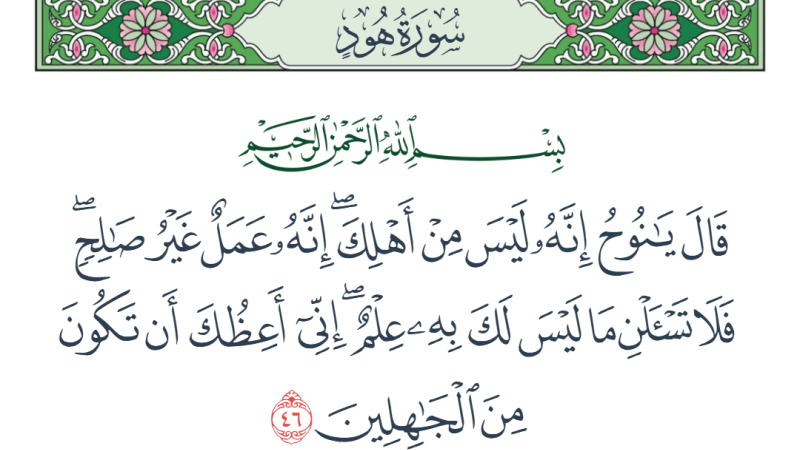 سُورَةُ هُودٍ
بِسْمِ ٱللَّهِ ٱلرَّحْمَٰنِ ٱلرَّحِيمِ
قَالَ يَٰنُوحُ إِنَّهُۥ لَيْسَ مِنْ أَهْلِكَ ۖ إِنَّهُۥ عَمَلٌ غَيْرُ صَٰلِحٍ ۖ
فَلَا تَسْـَٔلْنِ مَا لَيْسَ لَكَ بِهِۦ عِلْمٌ ۖ إِنِّىٓ أَعِظُكَ أَن تَكُونَ
مِنَ ٱلْجَٰهِلِينَ ٤٦